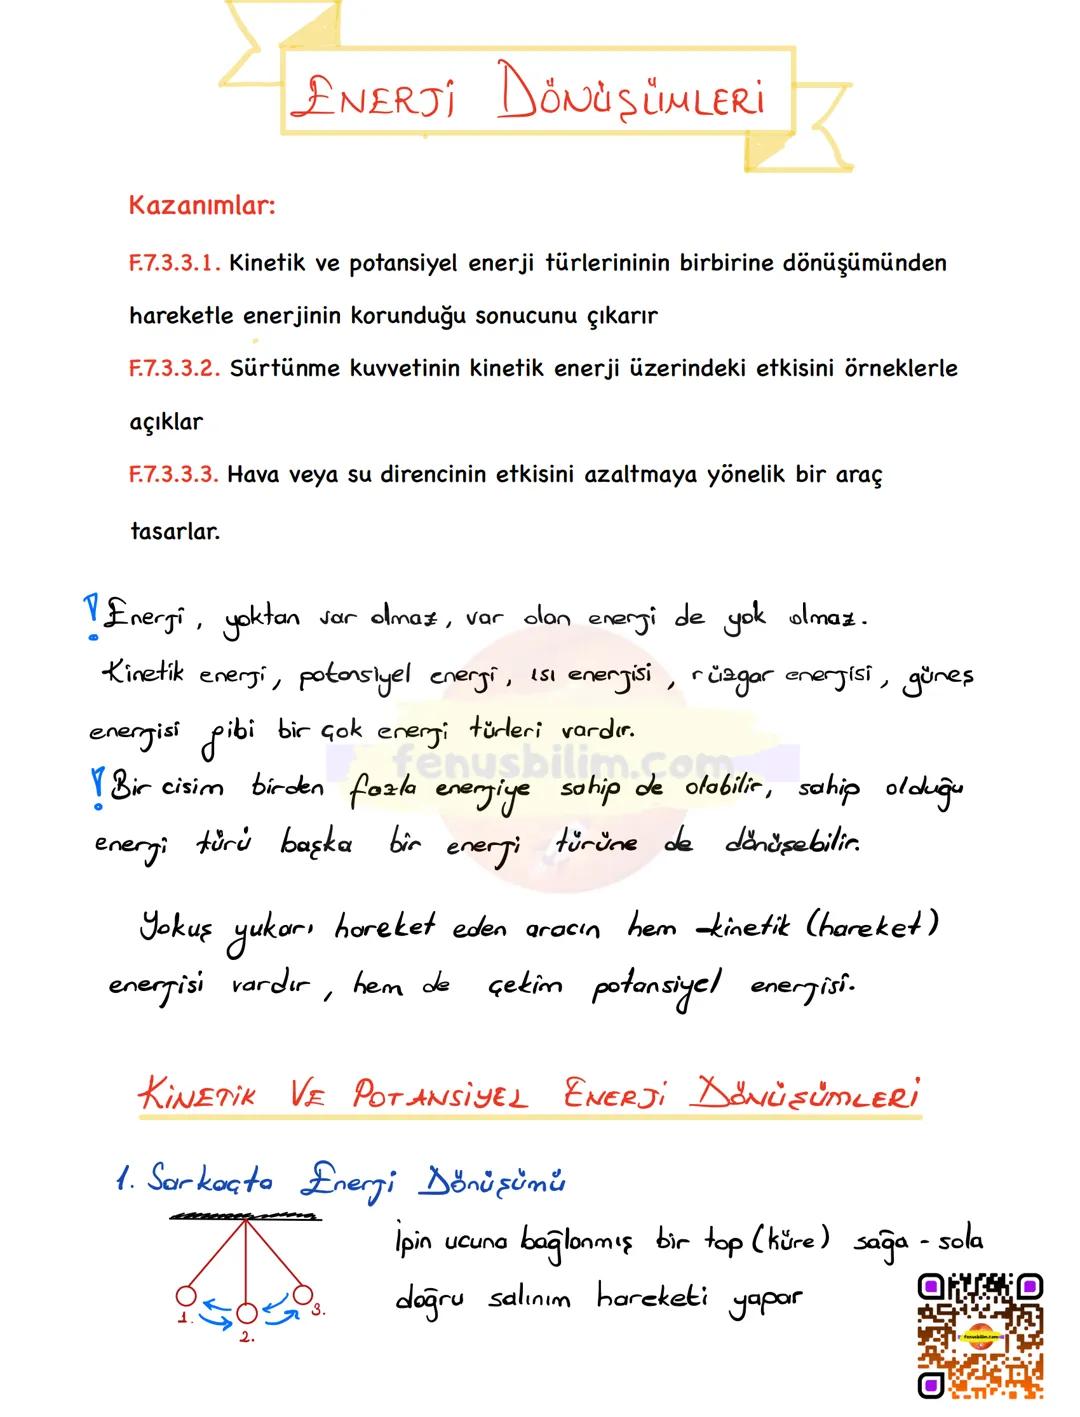 ENERJİ DÖNÜŞÜMLERİ
Kazanımlar:
F.7.3.3.1. Kinetik ve potansiyel enerji türlerininin birbirine dönüşümünden
hareketle enerjinin korunduğu sonucunu çıkarır
F.7.3.3.2. Sürtünme kuvvetinin kinetik enerji üzerindeki etkisini örneklerle
açıklar
F.7.3.3.3. Hava veya su direncinin etkisini azaltmaya yönelik bir araç
tasarlar.
! Enerji, yoktan var olmaz, var olan enerji de yok olmaz.
Kinetik enerji, potansiyel enerji, ısı enerjisi, rüzgar enerjisi, güneş
enerjisi gibi bir çok enerji türleri vardır.
fenusbilim.com
! Bir cisim birden fazla enerjiye sahip de olabilir, sahip olduğu
enerji türü başka bir enerji türüne de dönüşebilir.
Yokuş yukarı hareket eden aracın hem kinetik (hareket)
enerjisi vardır, hem de çekim potansiyel enerjisi.
KİNETİK VE POTANSİYEL ENERJİ DÖNÜŞÜMLERİ
1. Sarkaçta Enerji Dönüşümü
İpin ucuna bağlanmış bir top (küre) sağa - sola
doğru salınım hareketi yapar
1.
2.
3.
fenusbilim.com